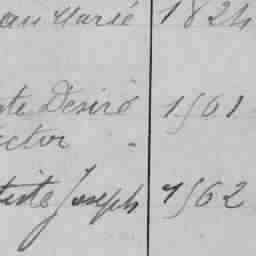 an Marie 1824
te Desiré 1501
ctor "
tiste Joseph 1562